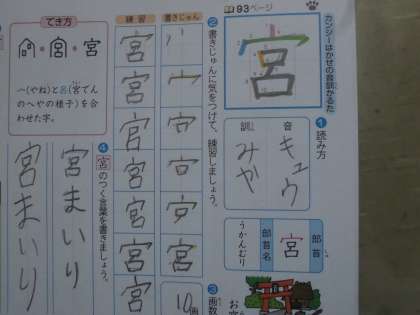 93ページ
カンジーはかせの音訓かるた
宮
❶読み方
音
キュウ
訓
みや
部首
宮
部首名
うかんむり
❷書きじゅんに気をつけて、練習しましょう。
書きじゅん
宮
練習
宮
宮
宮
宮
宮
宮
宮
❸画数
10画
でき方
宮
宮
宀(やね)と呂(宮でん
のへやの様子)を合
わせた字。
❹宮のつく言葉を書きましょう。
宮まいり
宮まいり
お宮